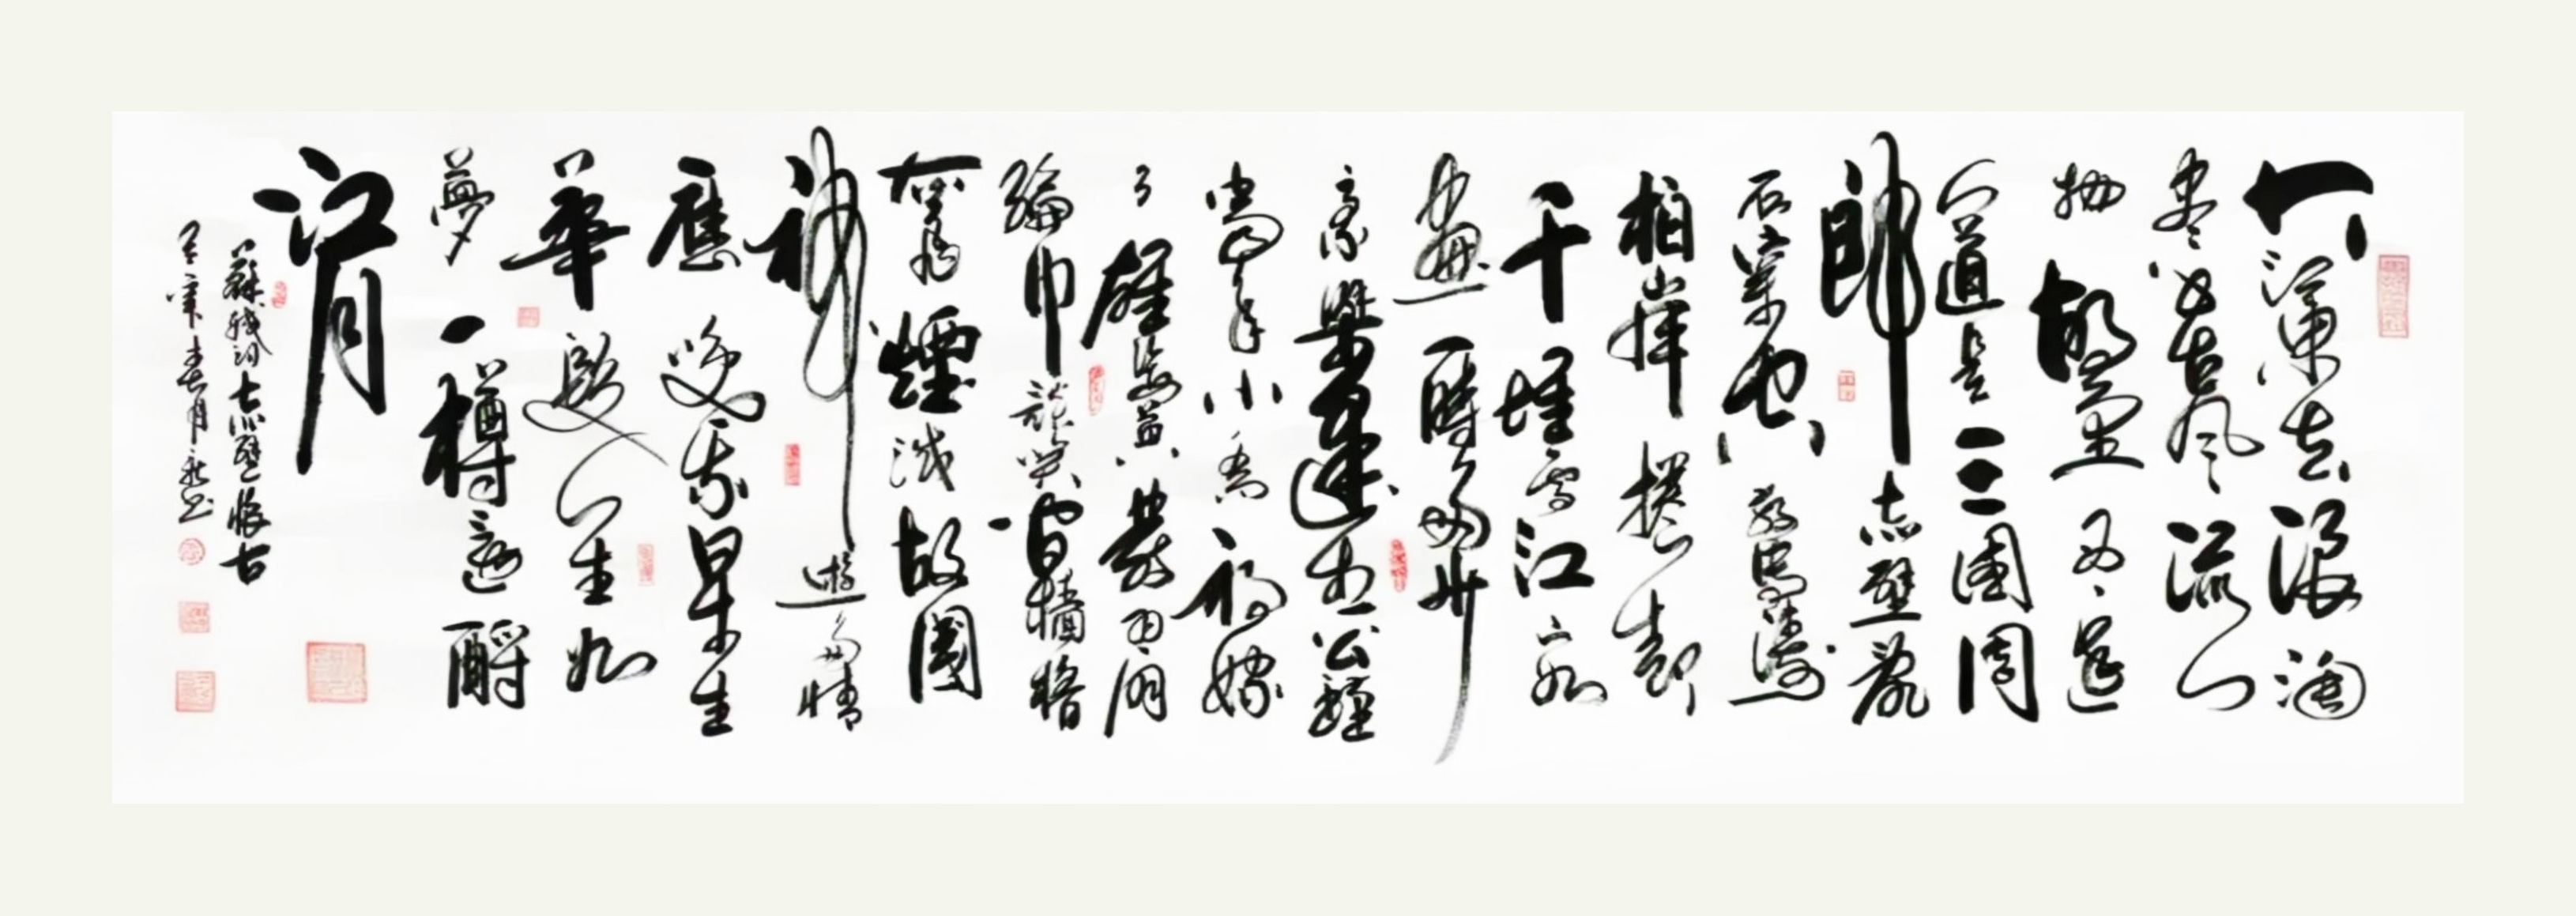 大江東去浪淘
盡千古風流人
物故壘西邊
人道是三國周
郎赤壁亂
石穿空驚濤
拍岸捲起
千堆雪江山如
畫一時多少
豪傑遙想公瑾
當年小喬初嫁
了雄姿英發羽扇
綸巾談笑間檣櫓
灰飛煙滅故國
神遊多情
應笑我早生
華髮人生如
夢一樽還酹
江月
蘇軾詞赤壁懷古
壬寅年春月书